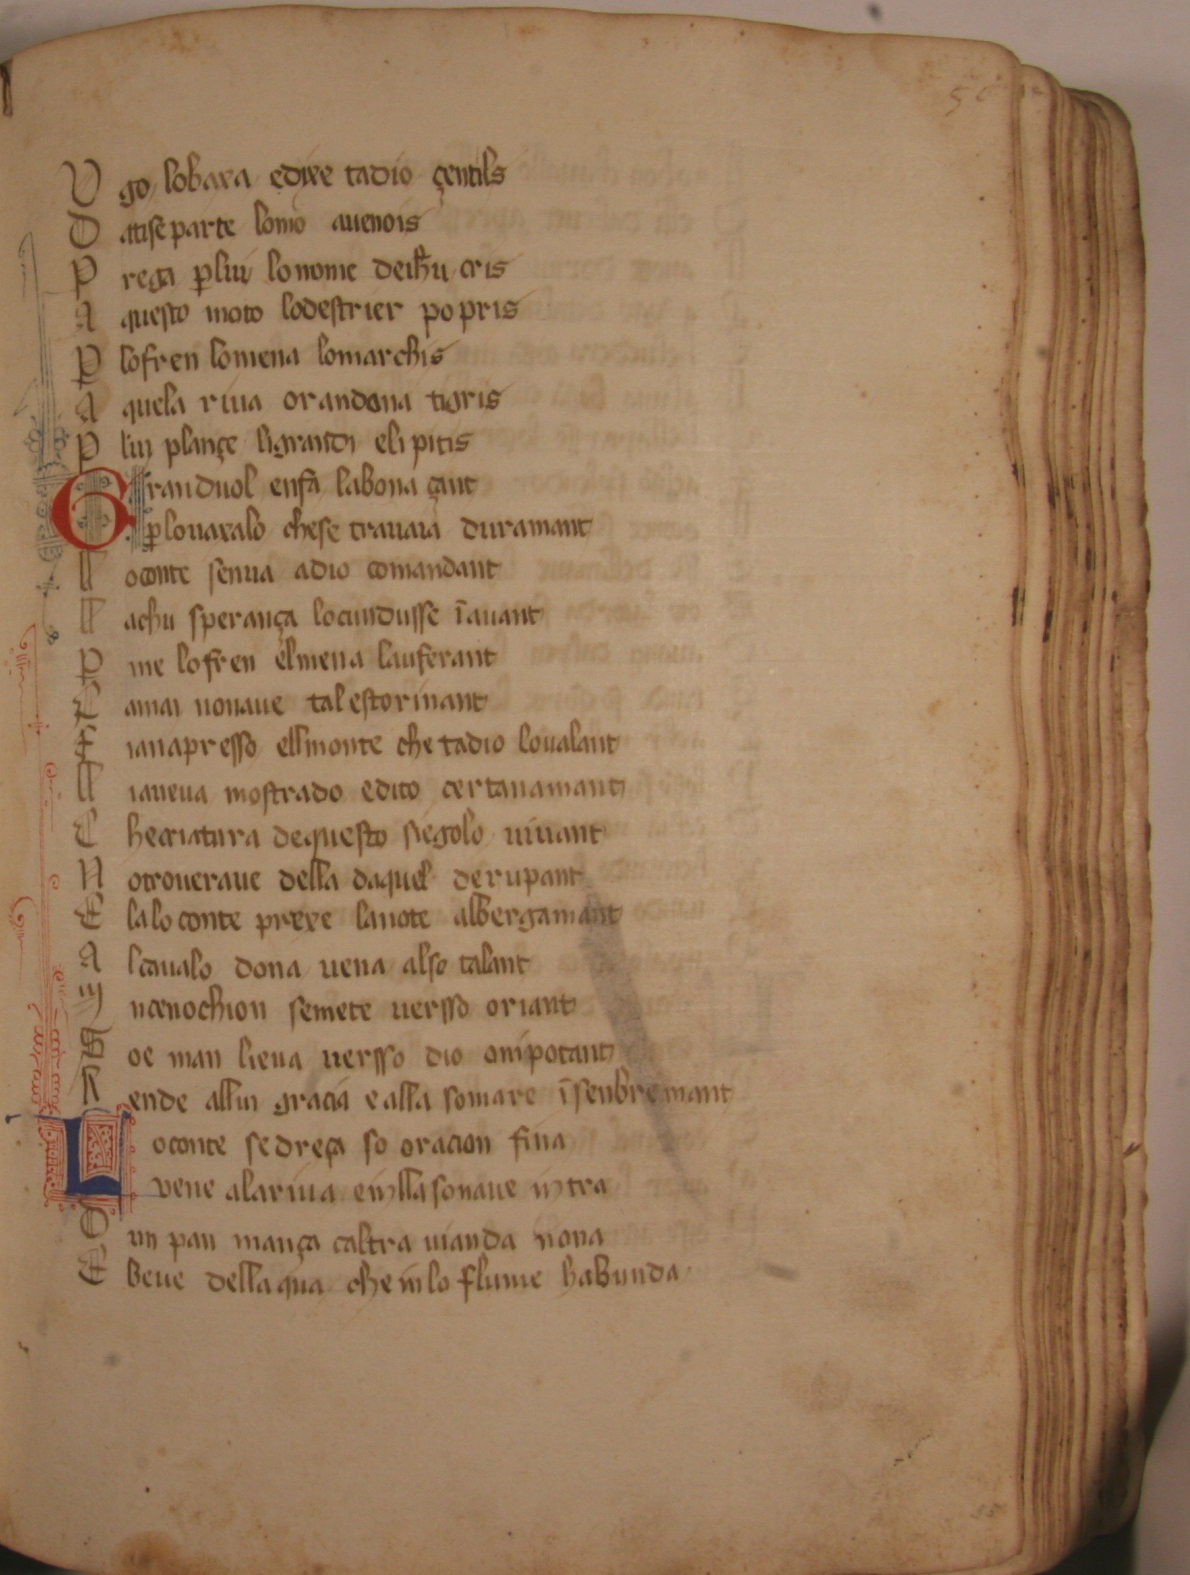 56
V go lobaxa edixe tadio çentils
D atise parte lomo auenois
P rega ꝑlui lo nome deih̃u cris
A questo moto lodestrier po pris
P lo fren lo mena lo marchis
A quela riua orandona tigris
P lui plançe li grandi eli pitis
G ran duol en fã la bona çant
ꝑ lo uaxalo che se trauaia duramant
ll o conte sen ua adio comandant
ll achu sperança lo cundusse ĩ auant
P me lo fren el mena lauferant
C amai non aue tal estormant
E ian apresso ell monte che tadio loualant
ll i aueua mostrado e dito certanamant
C he criatura de questo siegolo uiuant
N o troueraue della daquel derupant
E la lo conte prexe la note albergamant
A l caualo dona uena al so talant
In cenochion se mete uersso oriant
S oe man lieua uersso dio onipotant
R ende allui gracia e alla so mare ĩ senbremant
L o conte se dreça so oracion fina
vene ala riua e in lla so naue intra
D un pan mança caltra uianda nona
E beue dell aqua che in lo flume habunda